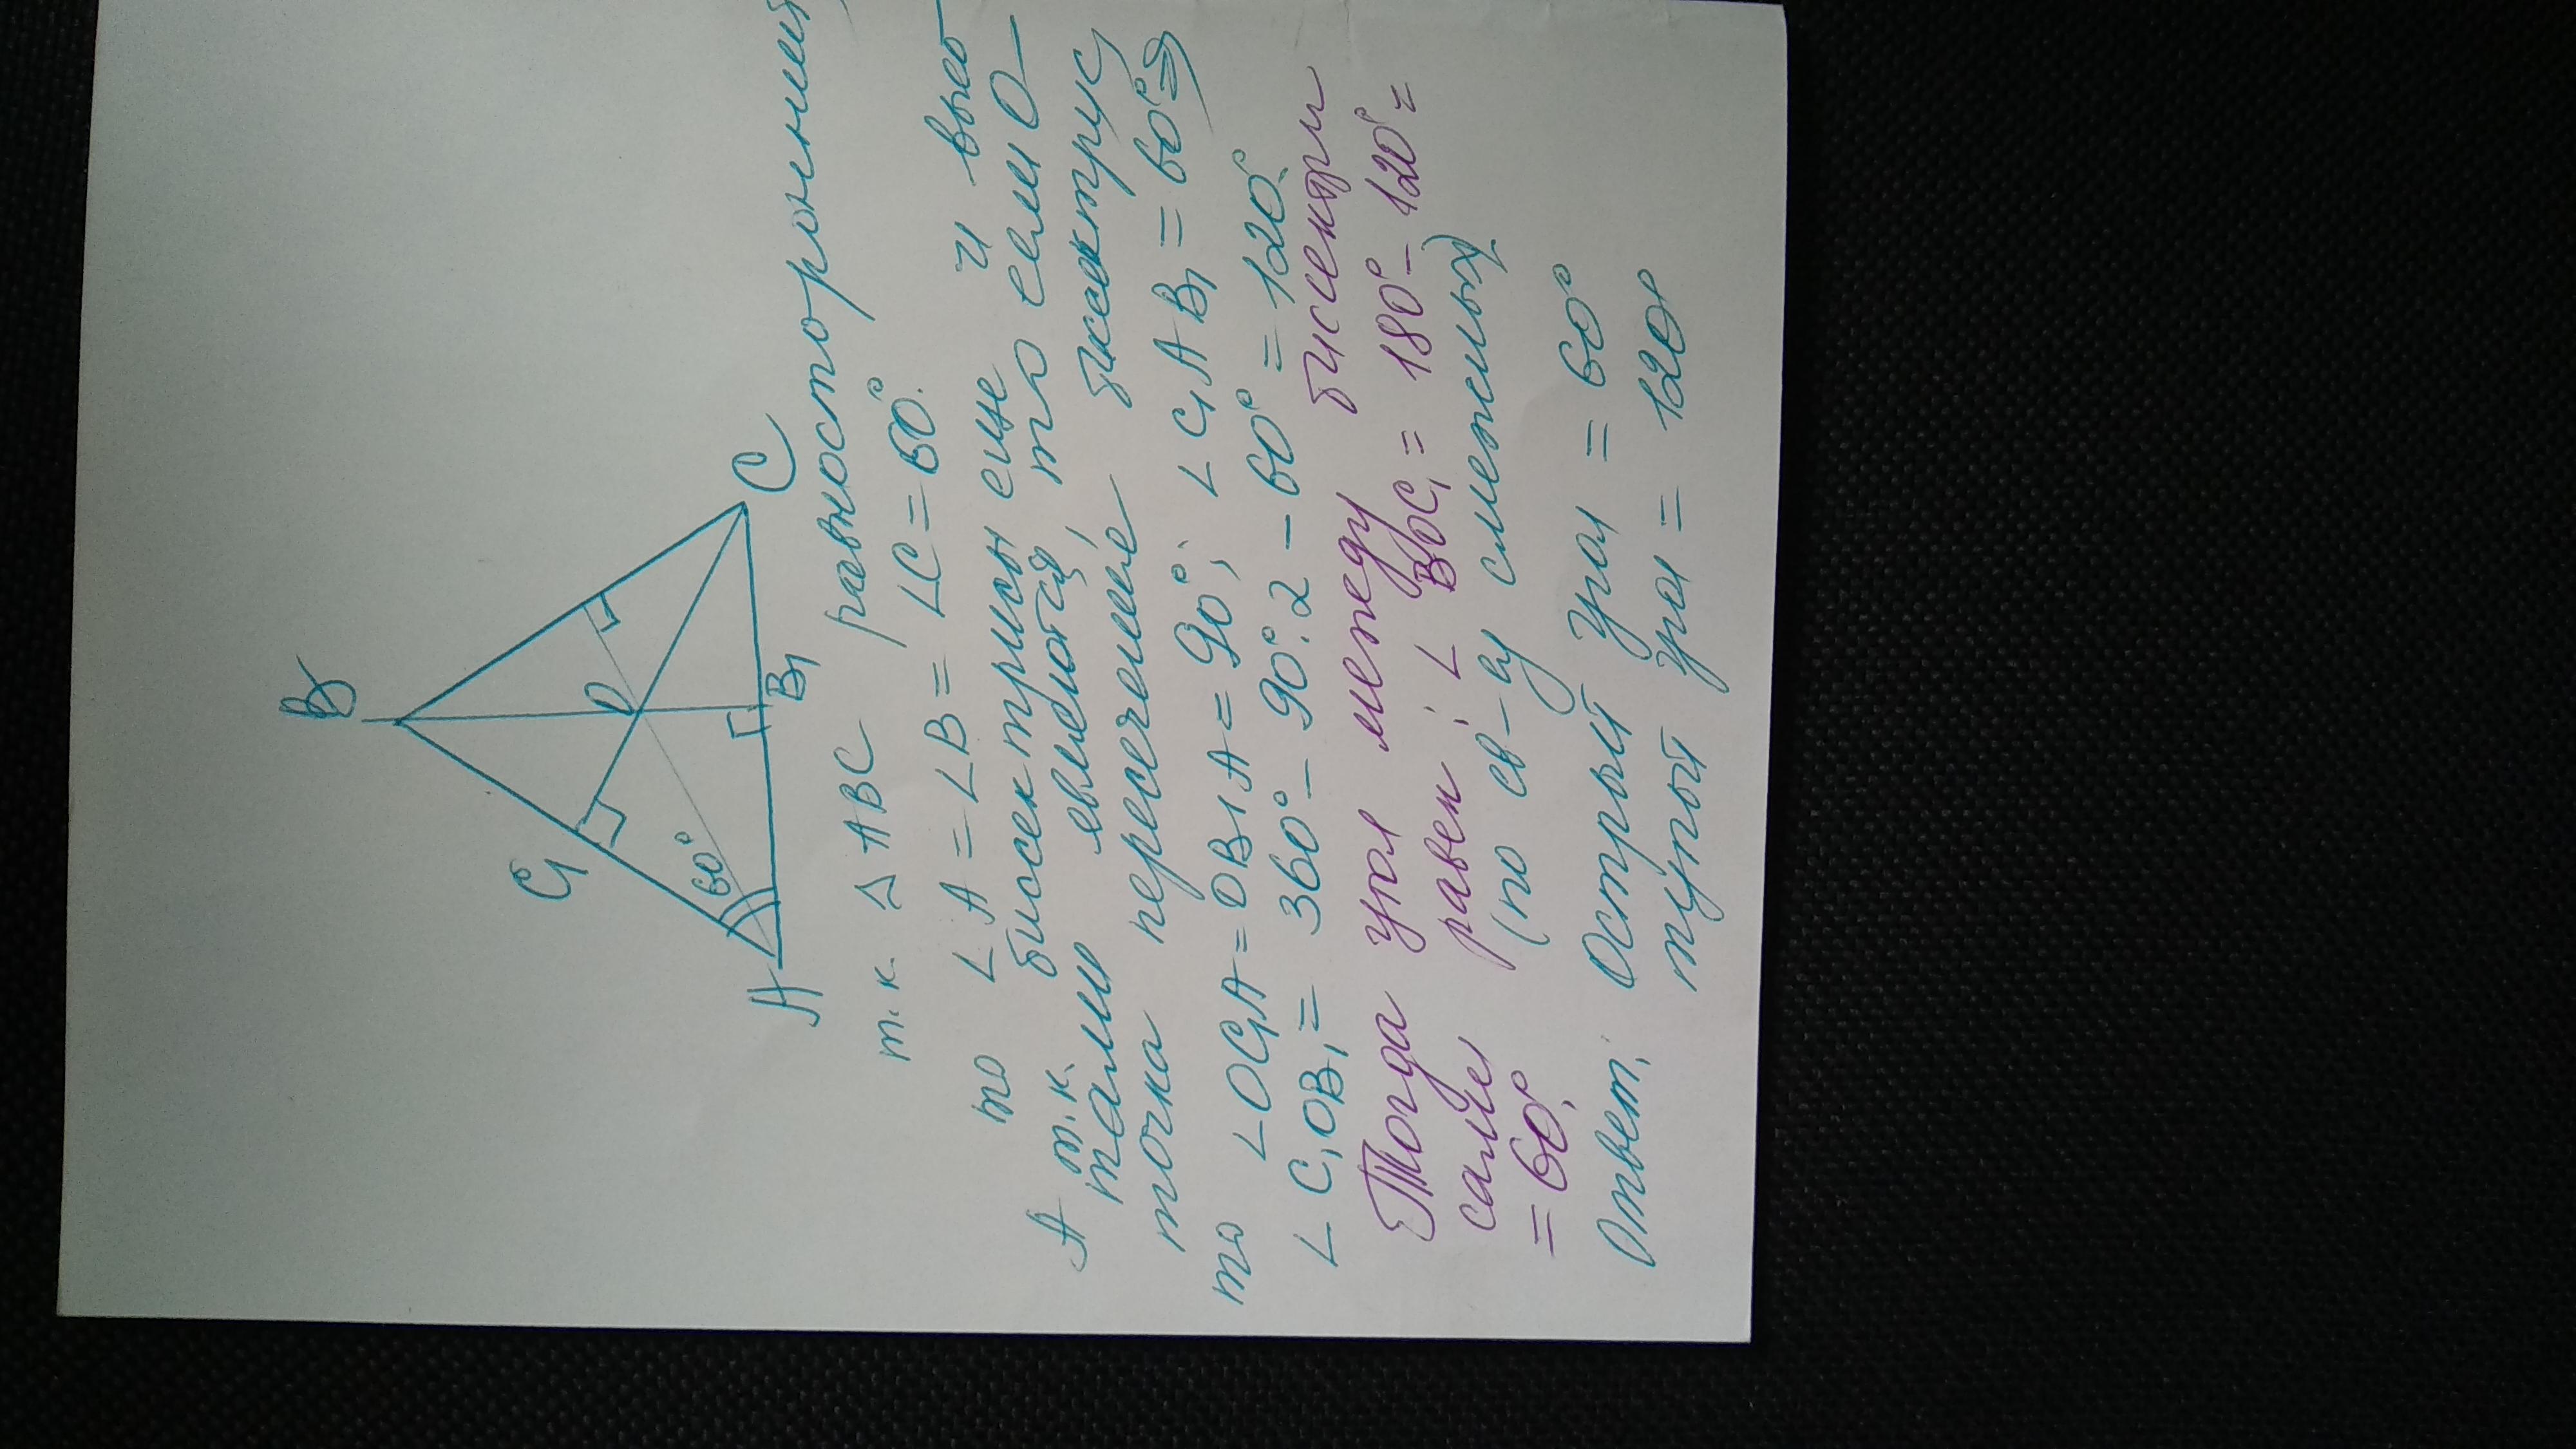 B
C₁
60°
O
A
B₁
C
т.к. △ ABC равносторонний,
то ∠A = ∠B = ∠C = 60°.
А т.к. биссектрисы еще и высо-
тами являются, то если O –
точка пересечение биссектрис,
то ∠OC₁A = OB₁A = 90°; ∠C₁AB₁ = 60° ⇒
∠C₁OB₁ = 360° – 90°·2 – 60° = 120°.
Тогда угол между биссектри
сами равен: ∠BOC₁ = 180° – 120° =
= 60°. (по св-ву смежных)
Ответ: Острый угол = 60°
тупый угол = 120°